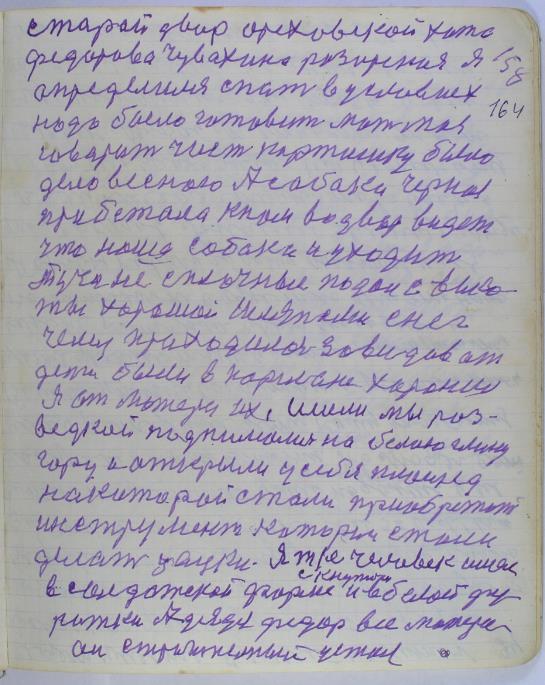 старой двор ореховской хата
федорова Чувахина разорения Я
158
определился спат в условиях
164
надо было готовит мат
говарят чист картошку было
дело весною А собака черная
прибегала к нам во двор видет
что наша собака и уходит
Туча не сплочные подои с высо
ты хорошой шляпами снег
чему приходилос завидоват
дети были в кармане хороню
Я от матери их, шли мы раз-
ведкой поднимаяс на белою глину
гору и открыли у себя площед
на каторой стали приобретат
инструмент которым стали
делат Я тоже человек
с кнутом
в солдатской форме и в белой фу
ражки А дядя федор все
он стриженный устал